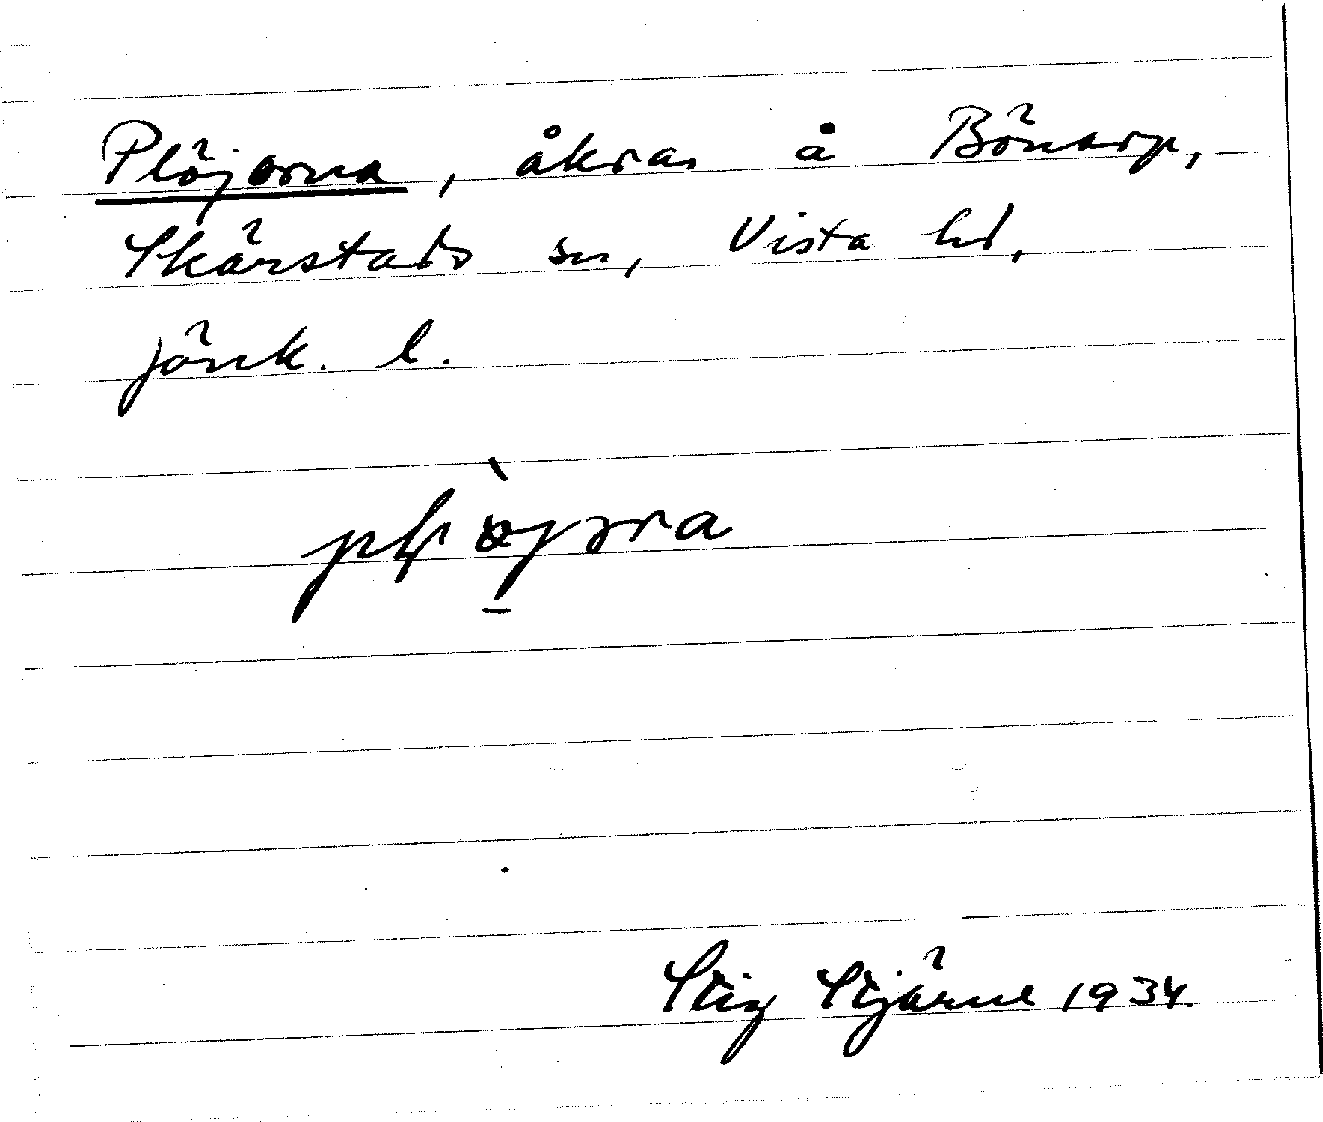 Plöjorna, åkrar å Bönarp,
Skärstads sn, Vista hd,
Jönk. l.
Stig Stjärne 1934.